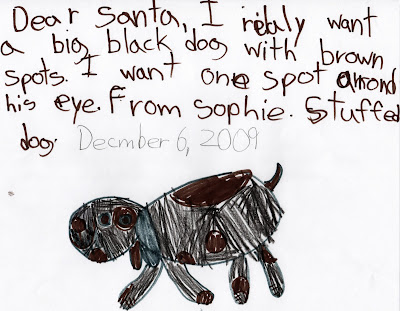 Dear Santa, I realy want
a big black dog with brown
spots. I want one spot arond
his eye. From Sophie. Stuffed
dog. Decmber 6, 2009